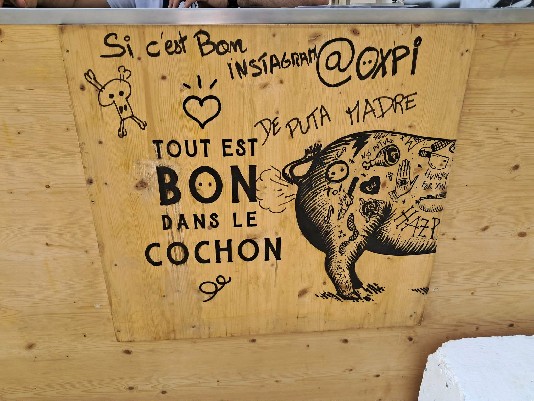 Si c'est Bon
INSTAGRAM @OXPI
DE PUTA MADRE
TOUT EST
BON
DANS LE
COCHON